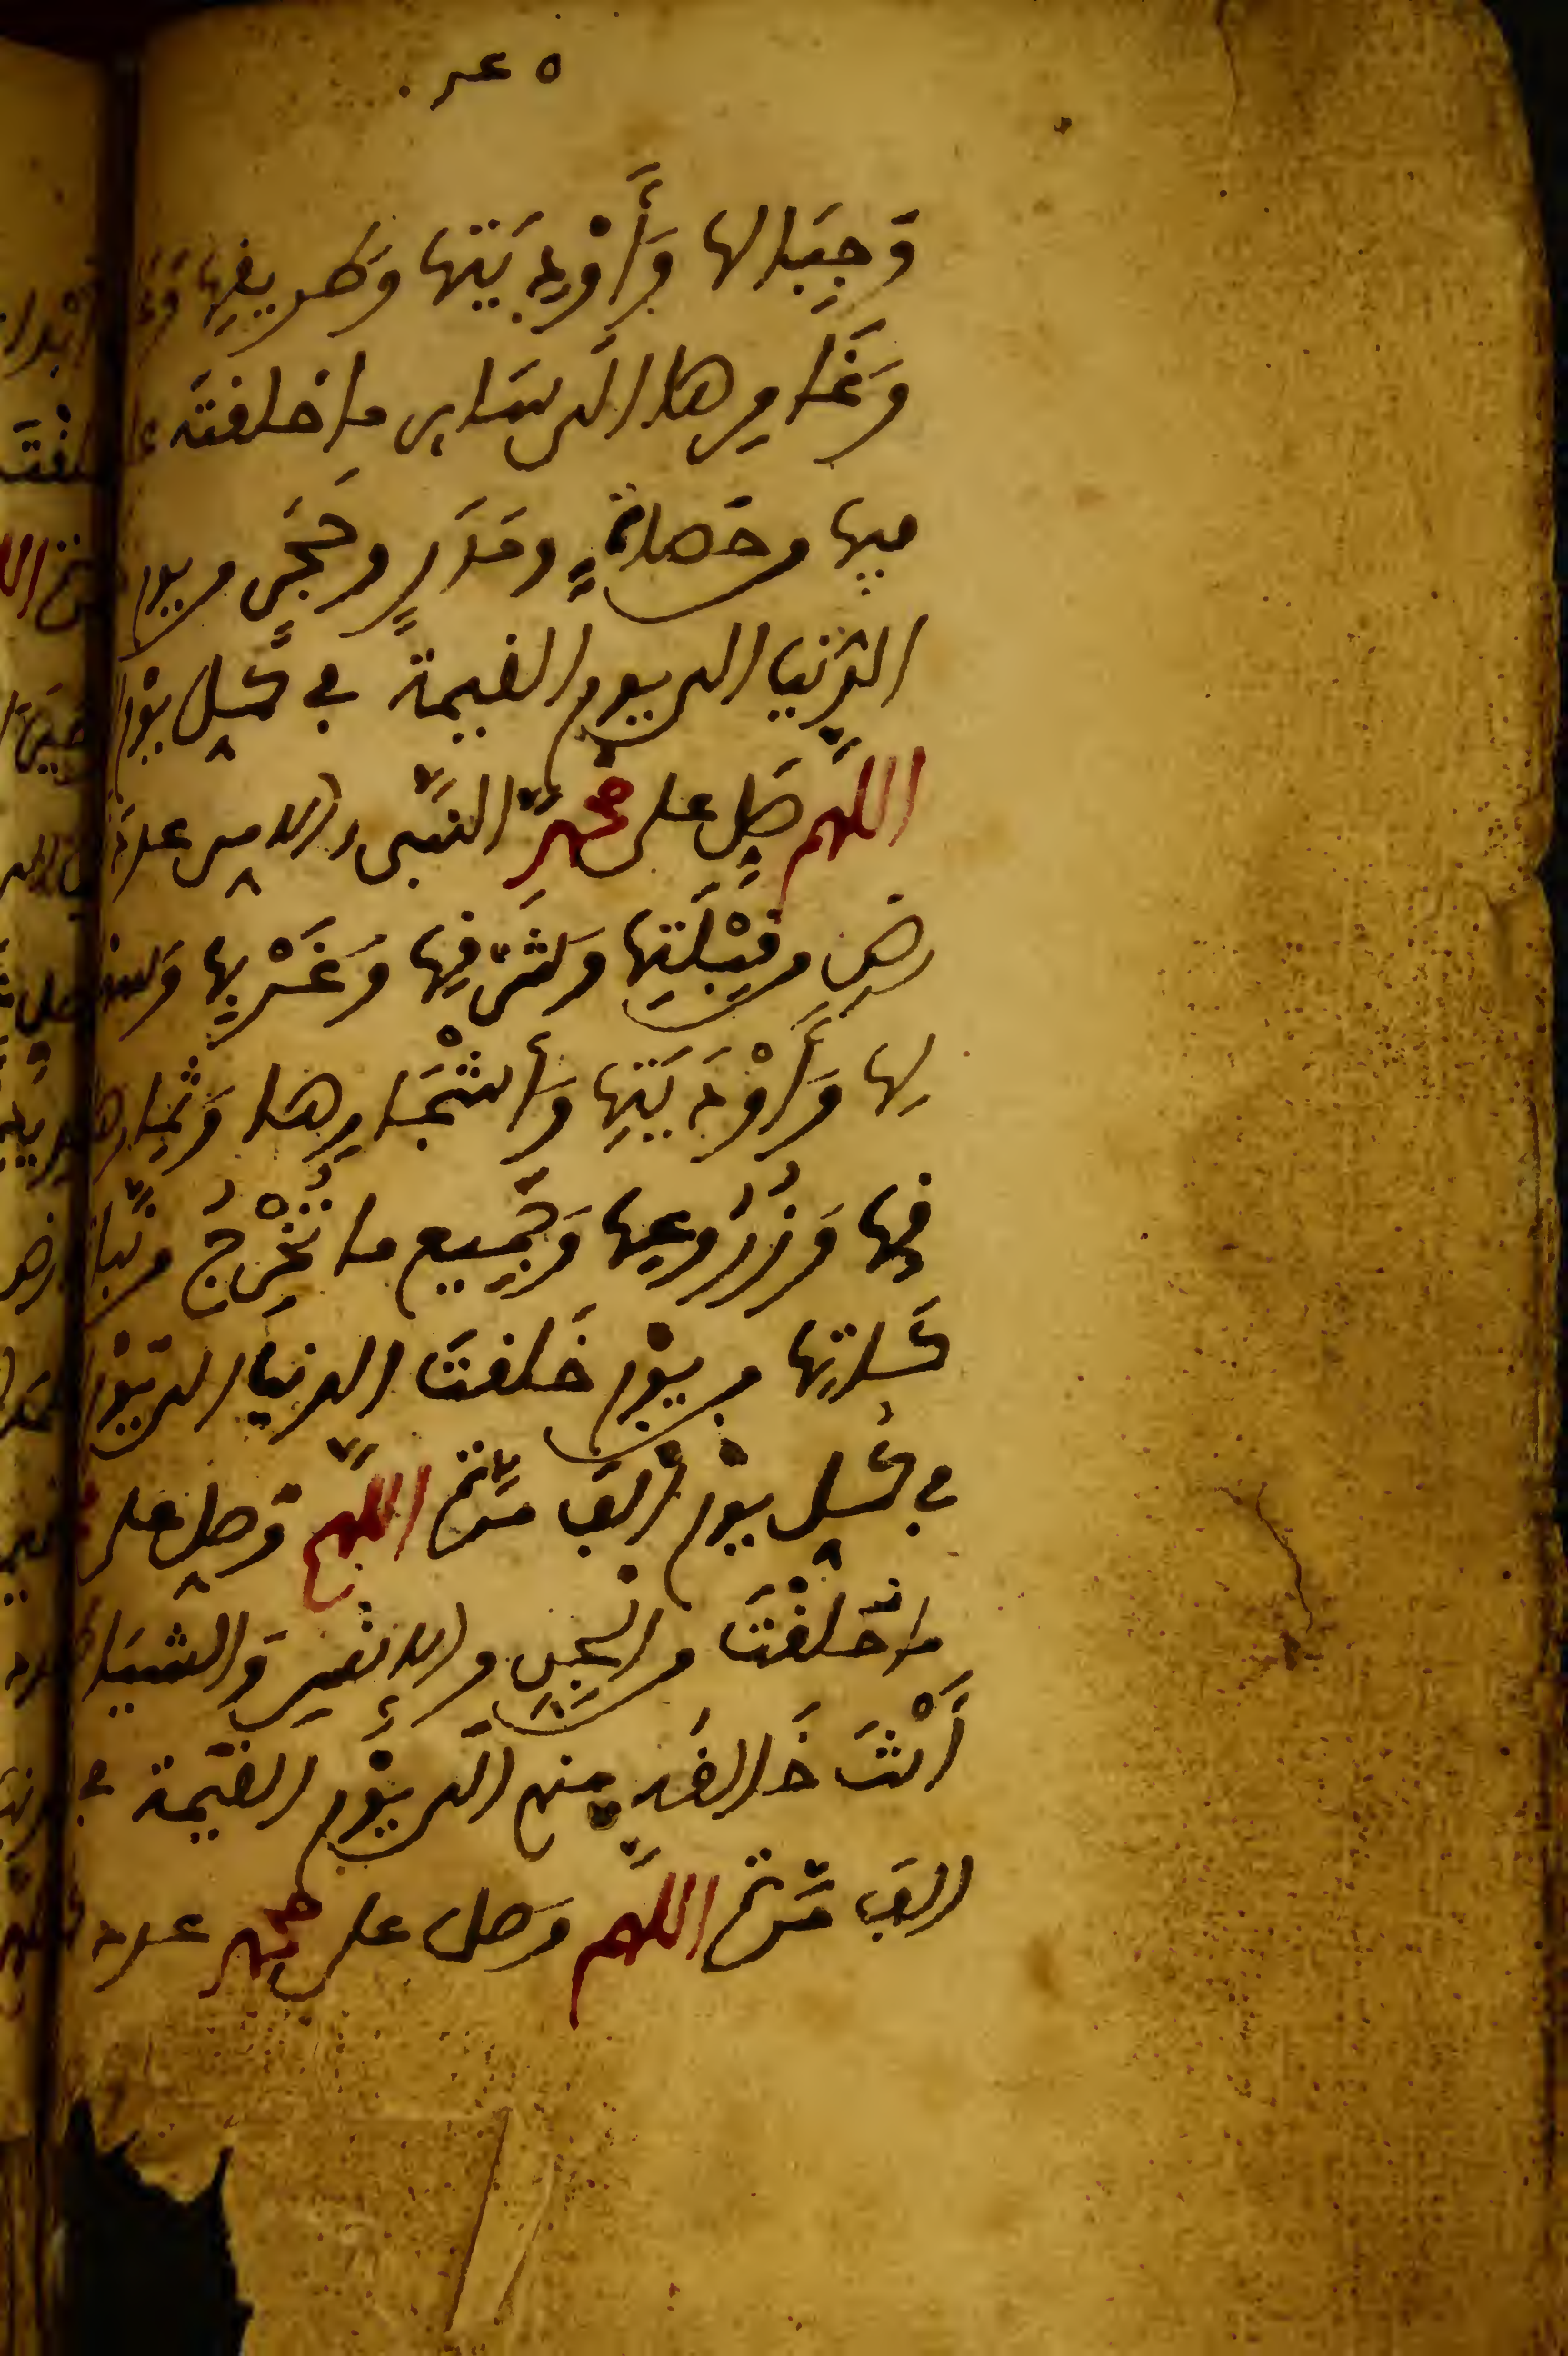 وَجِبَالها وَأَوْدِيَتها وَطريقِها
وَعَامِرها الى سَاير ما خلقته
فيها من حَصاةٍ ومَدَرٍ وحَجَرٍ من يوم
الدنيا الى يوم القيمة في كُلِّ يوْم
اللهم صَلِّ على محمد النَّبي
رض من قِبْلَتِها وَشَرْقِها وَغَرْبِها وَسهْ
لِها وَأَوْدِيَتِها وَأشْجَارِها وَثِمارها
فِها وَزُرُوعِها وَجَمِيع ما تُخْرِجُ من نَّبا
من يوْم خَلقتَ الدنيا الى يوْم
في كُلِّ يوْم ألف مَرَّة اللهم وَصل على
ما خَلَقْتَ من الجِنِّ والإنسِ وَالشيَا
أَنْتَ خَالقُه منهم الى يوْم القيَمة في
الف مَّرة اللهم وَصل على محمد عدد